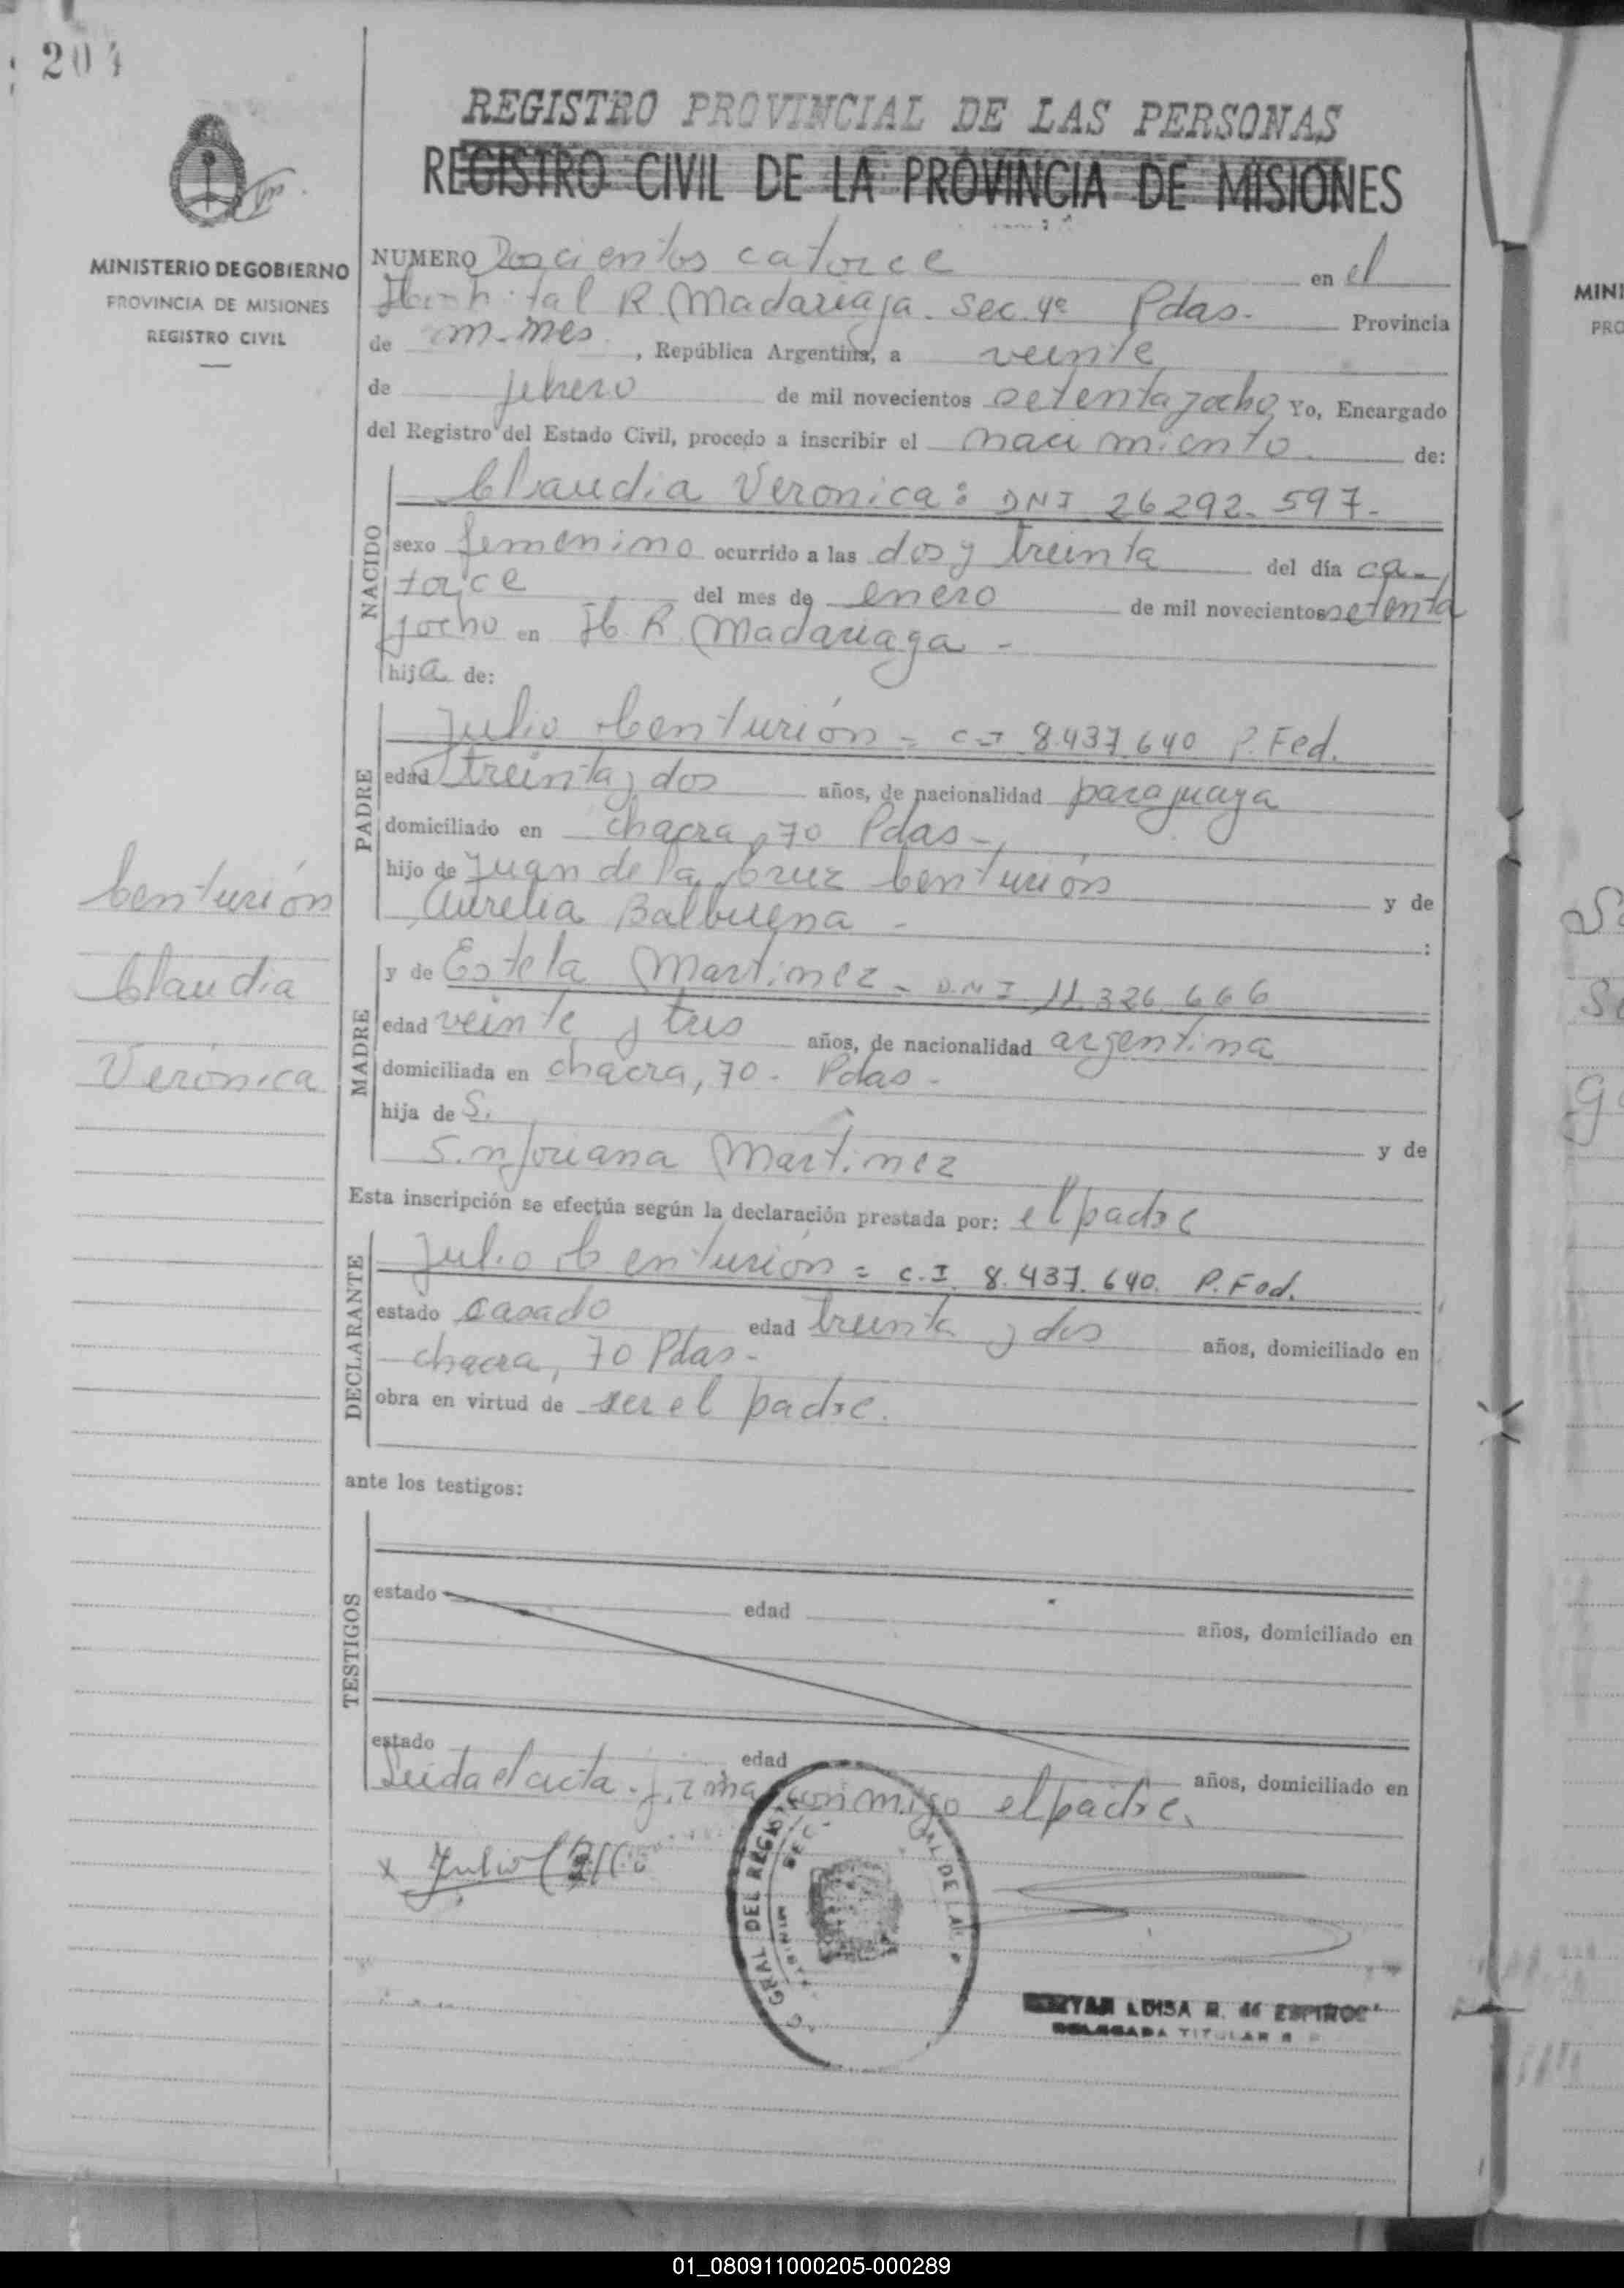 204
REGISTRO PROVINCIAL DE LAS PERSONAS
REGISTRO CIVIL DE LA PROVINCIA DE MISIONES
MINISTERIO DE GOBIERNO
PROVINCIA DE MISIONES
REGISTRO CIVIL
NUMERO Doscientos catorce en el
Hospital R Madariaga. Sec. 4ª Pdas. Provincia
de m-mes, República Argentina, a veinte
de febrero de mil novecientos setenta y ocho Yo, Encargado
del Registro del Estado Civil, procedo a inscribir el nacimiento de:
NACIDO
Claudia Veronica: DNI 26292.597.-
sexo femenino ocurrido a las dos y treinta del día ca-
torce del mes de enero de mil novecientos setenta
y ocho en H. R. Madariaga -
hija de:
PADRE
Julio Centurión - CI 8.437.640 P. Fed.
edad treinta y dos años, de nacionalidad paraguaya
domiciliado en chacra, 70 Pdas -
hijo de Juan de la Cruz Centurión y de
Aurelia Balbuena - :
Centurión
Claudia
Verónica
MADRE
y de Estela Martinez - D.N.I 11.326.666
edad veinte y tres años, de nacionalidad argentina
domiciliada en chacra, 70 - Pdas -
hija de S. y de
Sinforiana Martinez
Esta inscripción se efectúa según la declaración prestada por: el padre
DECLARANTE
Julio Centurión = C.I. 8.437.640. P. Fed.
estado casado edad treinta y dos años, domiciliado en
chacra, 70 Pdas -
obra en virtud de ser el padre.
ante los testigos:
TESTIGOS
estado edad años, domiciliado en
estado edad años, domiciliado en
Leida el acta. firma conmigo el padre.
x Julio
GRAL DEL REGIST
DE LA
LUISA R. de
DELEGADA TITULAR
MINI
PRO
01_080911000205-000289